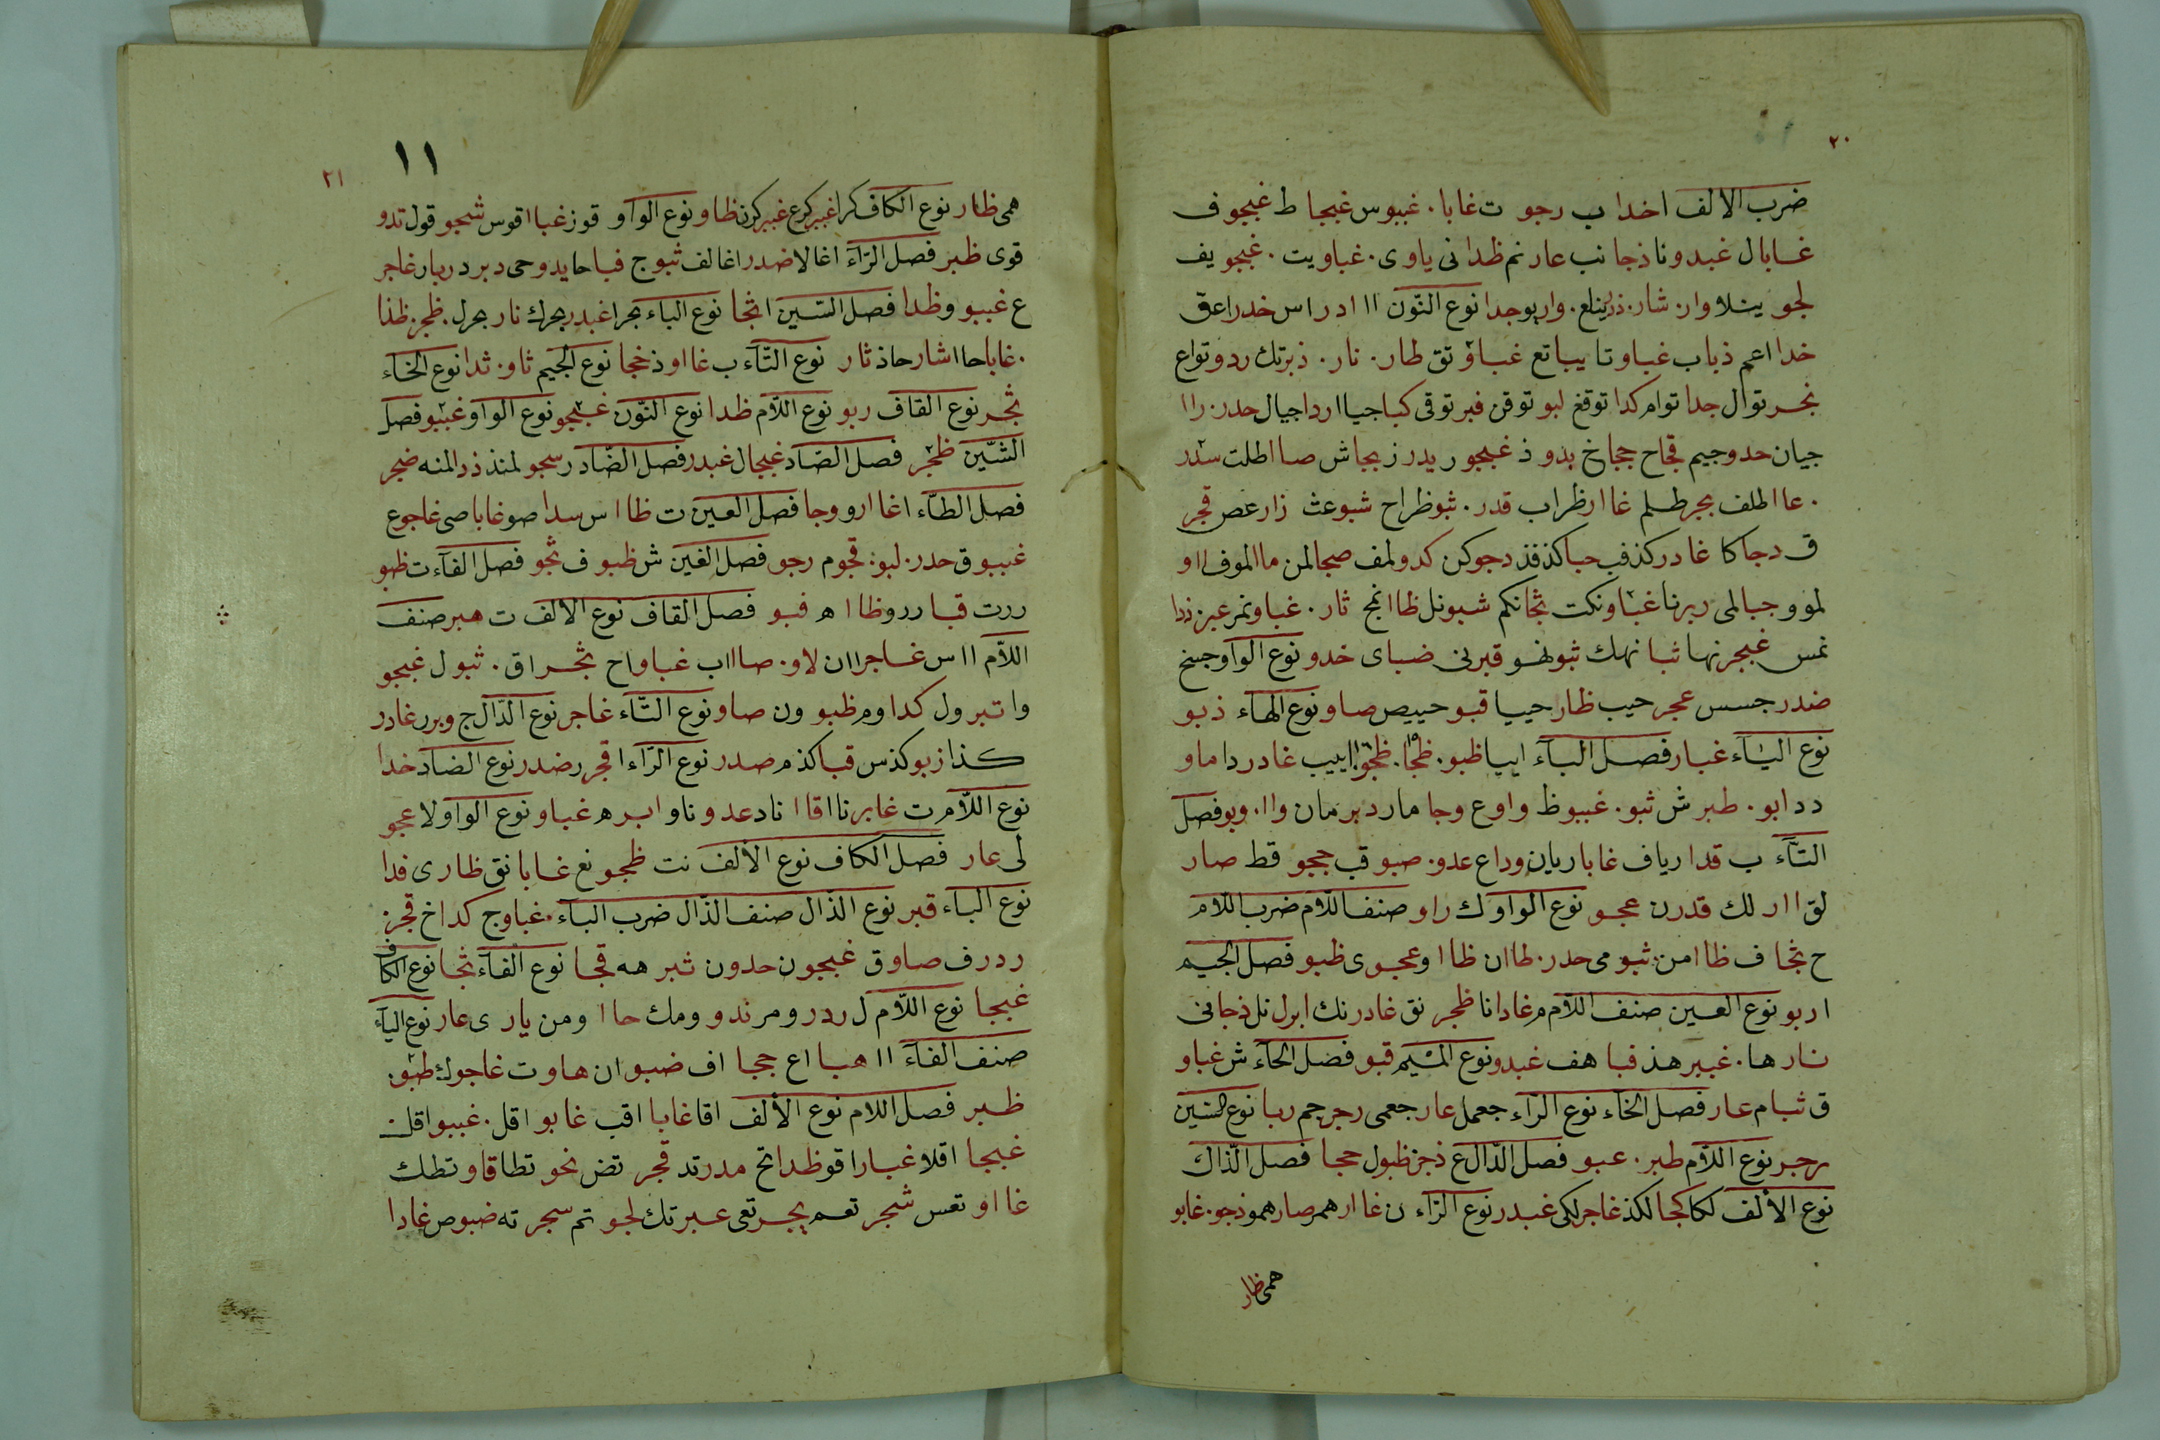 ٢٠
ضرب الالف اخدا ب رجو ت غابا. غببوس غبجا ط غبجوف
غابال غبدونا ذجا نب عار نم ظدا نى ياوى. غباويت. غبجو يف
لجو وار. شار. واربوجدا نوع النّون اا ادراس خدراعق
خدا اعم ذباب غباوتا يباتع غباو تق طار. نار. ذبرتك ردوتواع
نجر توال جدا توام كدا توقغ لبو توقن فبر توقى كباجيا اردا جيال حدر. راا
جيان حدوجيم قجاح ججاخ بدو ذ غبجور يدر زبجاش صا اطلت سدر
. عا اطلف بجر طلم غا ارظراب قدر. ثبوظراح شبوعث زارعص قجر
ق دجاكا غادركذفب حباكذفذ دجوكن كدولمف صجالمن ما الموف ااو
لموو جبالمى ربرنا غباونكت ثجانكم شبونل ظا انمج ثار. غباونمر عبرز ذدا
نمس غبجر نها ثبا نهك ثبو نهو قبرنى ضباى خدو نوع الواو جسخ
ضدر جسس عجر حيب ظار حييا قبو حييص صاو نوع الهاء ذبو
نوع اليآء غبار فصل البآء ابيا ظبو. ظجا. ظجوا ابيب غادر دا ماو
ددابو. طبر ش ثبو. غببوظ واوع وجا مار دبرمان واا. وبو فصل
التّآء ب قدا رياف غابا ريان وداع عدو. صبوقب ججو قط صار
لق اار لك قدرن عجو نوع الواو ك راو صنف اللّام ضرب اللّام
ح ثجاف ظا امن. ثبو مى حدر. طا ان ظا اوعجوى ظبو فصل الجيم
اربو نوع العين صنف اللّام م غادانا ظجر نق غادر نك ابرل نل ذجانى
نارها. غببر هذ فبا هف غبدو نوع الميم قبو فصل الحآء ش غباو
ق ثبام عار فصل الخآء نوع الرّآء جعمل عار جعمى رجر جم ربا نوع السّين
رجبر نوع اللّام طبر. عبو فصل الدّال ع ذجز ظبول ججا فصل الذّال
نوع الألف لكا كجا لكذ غاجر لكى غبدر نوع الرّاء ن غا ارهم صارهمو ذجو. غابو
همى ظار
٢١
١١
همى ظار نوع الكاف كرا غببر كرع غببر كرن ظاو نوع الواو قوز غبا اقوس شجو قول تدو
قوى ظبر فصل الرّآء اغالا ضدر اغالف ثبوج فباحا يدوحى دبر دربار غاجر
ع غببو وظدا فصل السّين اثجا نوع الباء بجرا غبدر بجرك نار بجرل. ظجر. ظذا
. غاباحا اشارحاذ ثار نوع التّآء ب غا اوذ خجا نوع الجيم ثاو. ثدا نوع الخاء
ثجر نوع القاف ربو نوع اللّام ظدا نوع النّون غبجو نوع الواو غببو فصل
الشّين ظجر فصل الصّاد غبجال غبدر فصل الضّاد رسجو لمنذ ذدا لمنه ضجر
فصل الطّآء اغا اروجا فصل العين ت ظا اس سدا صو غاباصى غاجوع
غببوق حدر. لبو. قجوم رجو فصل الغين ش ظبوف ثجو فصل الفآء ت ظبو
ررت قبا رروظا اه فبو فصل القاف نوع الالف ت هبر صنف
اللّام ااس غاجراان لاو. صا اب غباواح ثجراق. ثبول غبجو
واتبرول كداوم ظبوون صاو نوع التّآء غاجر نوع الدّال ج وبرر غادر
كذا زبو كذس قباكذم صدر نوع الرّاءا قجر رضدر نوع الضاد خدا
نوع اللّام ت غابرنا اقا انادعدوناو ابره غباو نوع الواو لا عجو
لى عار فصل الكاف نوع الألف نت ظجونع غابانق ظارى فدا
نوع الباء قبر نوع الذّال صنف الذّال ضرب البآء. غباوج كداخ قجرز
ردرف صاوق غبجون حدون ثبر هه قجا نوع الفآء ثجا نوع الكاف
غبجا نوع اللّام ل ردرومرندوومك حا اومن يارى عار نوع اليآء
صنف الفآء اا هبا اع ججا اف ضبوان هاوت غاجوك طبو.
ظبر فصل اللام نوع الألف اقا غابا اقب غابو اقل. غببو اقلن
غبجا اقلا غبارا قو ظدا تخ مدرتد قجر تض نحو تطا قاو تطك
غا او تعس شجر تعم بجر تعى عبر تك لجو تم سجر ته ضبوص غادا